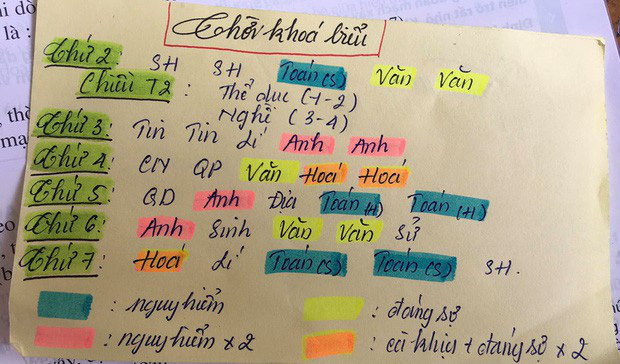 Thời khoá biểu
Thứ 2: SH SH Toán(S) Văn Văn
Chiều T2: Thể dục (1-2)
Nghề (3-4)
Thứ 3: Tin Tin Lí Anh Anh
Thứ 4: CN QP Văn Hoá Hoá
Thứ 5: GD Anh Địa Toán(H) Toán(H)
Thứ 6: Anh Sinh Văn Văn Sử
Thứ 7: Hoá Lí Toán(S) Toán(S) SH.
: nguy hiểm : đáng sợ
: nguy hiểm x2 : cà khịa + đáng sợ x2